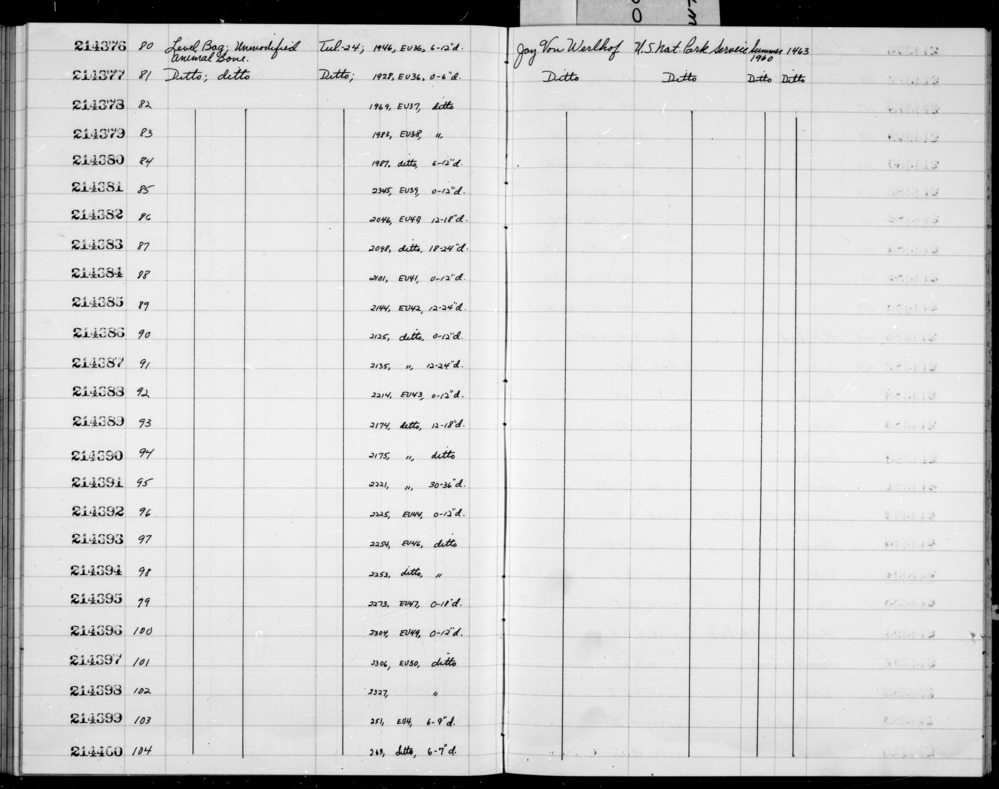 214376 80 Level Bag; Unmodified Tul-24; 1946, EU36, 6-12"d. Jay Von Werlhof U.S. Nat. Park Service Summer 1463
animal bone. 1960
214377 81 Ditto; ditto Ditto; 1928, EU36, 0-6"d. Ditto Ditto Ditto Ditto
214378 82 1969, EU37, ditto
214379 83 1983, EU38, "
214380 84 1987, ditto, 6-12"d.
214381 85 2345, EU39, 0-12"d.
214382 86 2046, EU49 12-18"d.
214383 87 2098, ditto, 18-24"d.
214384 88 2101, EU41, 0-12"d.
214385 89 2144, EU42, 12-24"d.
214386 90 2125, ditto, 0-12"d.
214387 91 2135, ", 12-24"d.
214388 92 2214, EU43, 0-12"d.
214389 93 2174, ditto, 12-18"d.
214390 94 2175, ", ditto
214391 95 2221, ", 30-36"d.
214392 96 2225, EU44, 0-12"d.
214393 97 2254, EU46, ditto
214394 98 2253, ditto, "
214395 99 2273, EU47, 0-18"d.
214396 100 2304, EU49, 0-12"d.
214397 101 2306, EU50, ditto
214398 102 2327, "
214399 103 251, EU4, 6-9"d.
214400 104 263, ditto, 6-7"d.